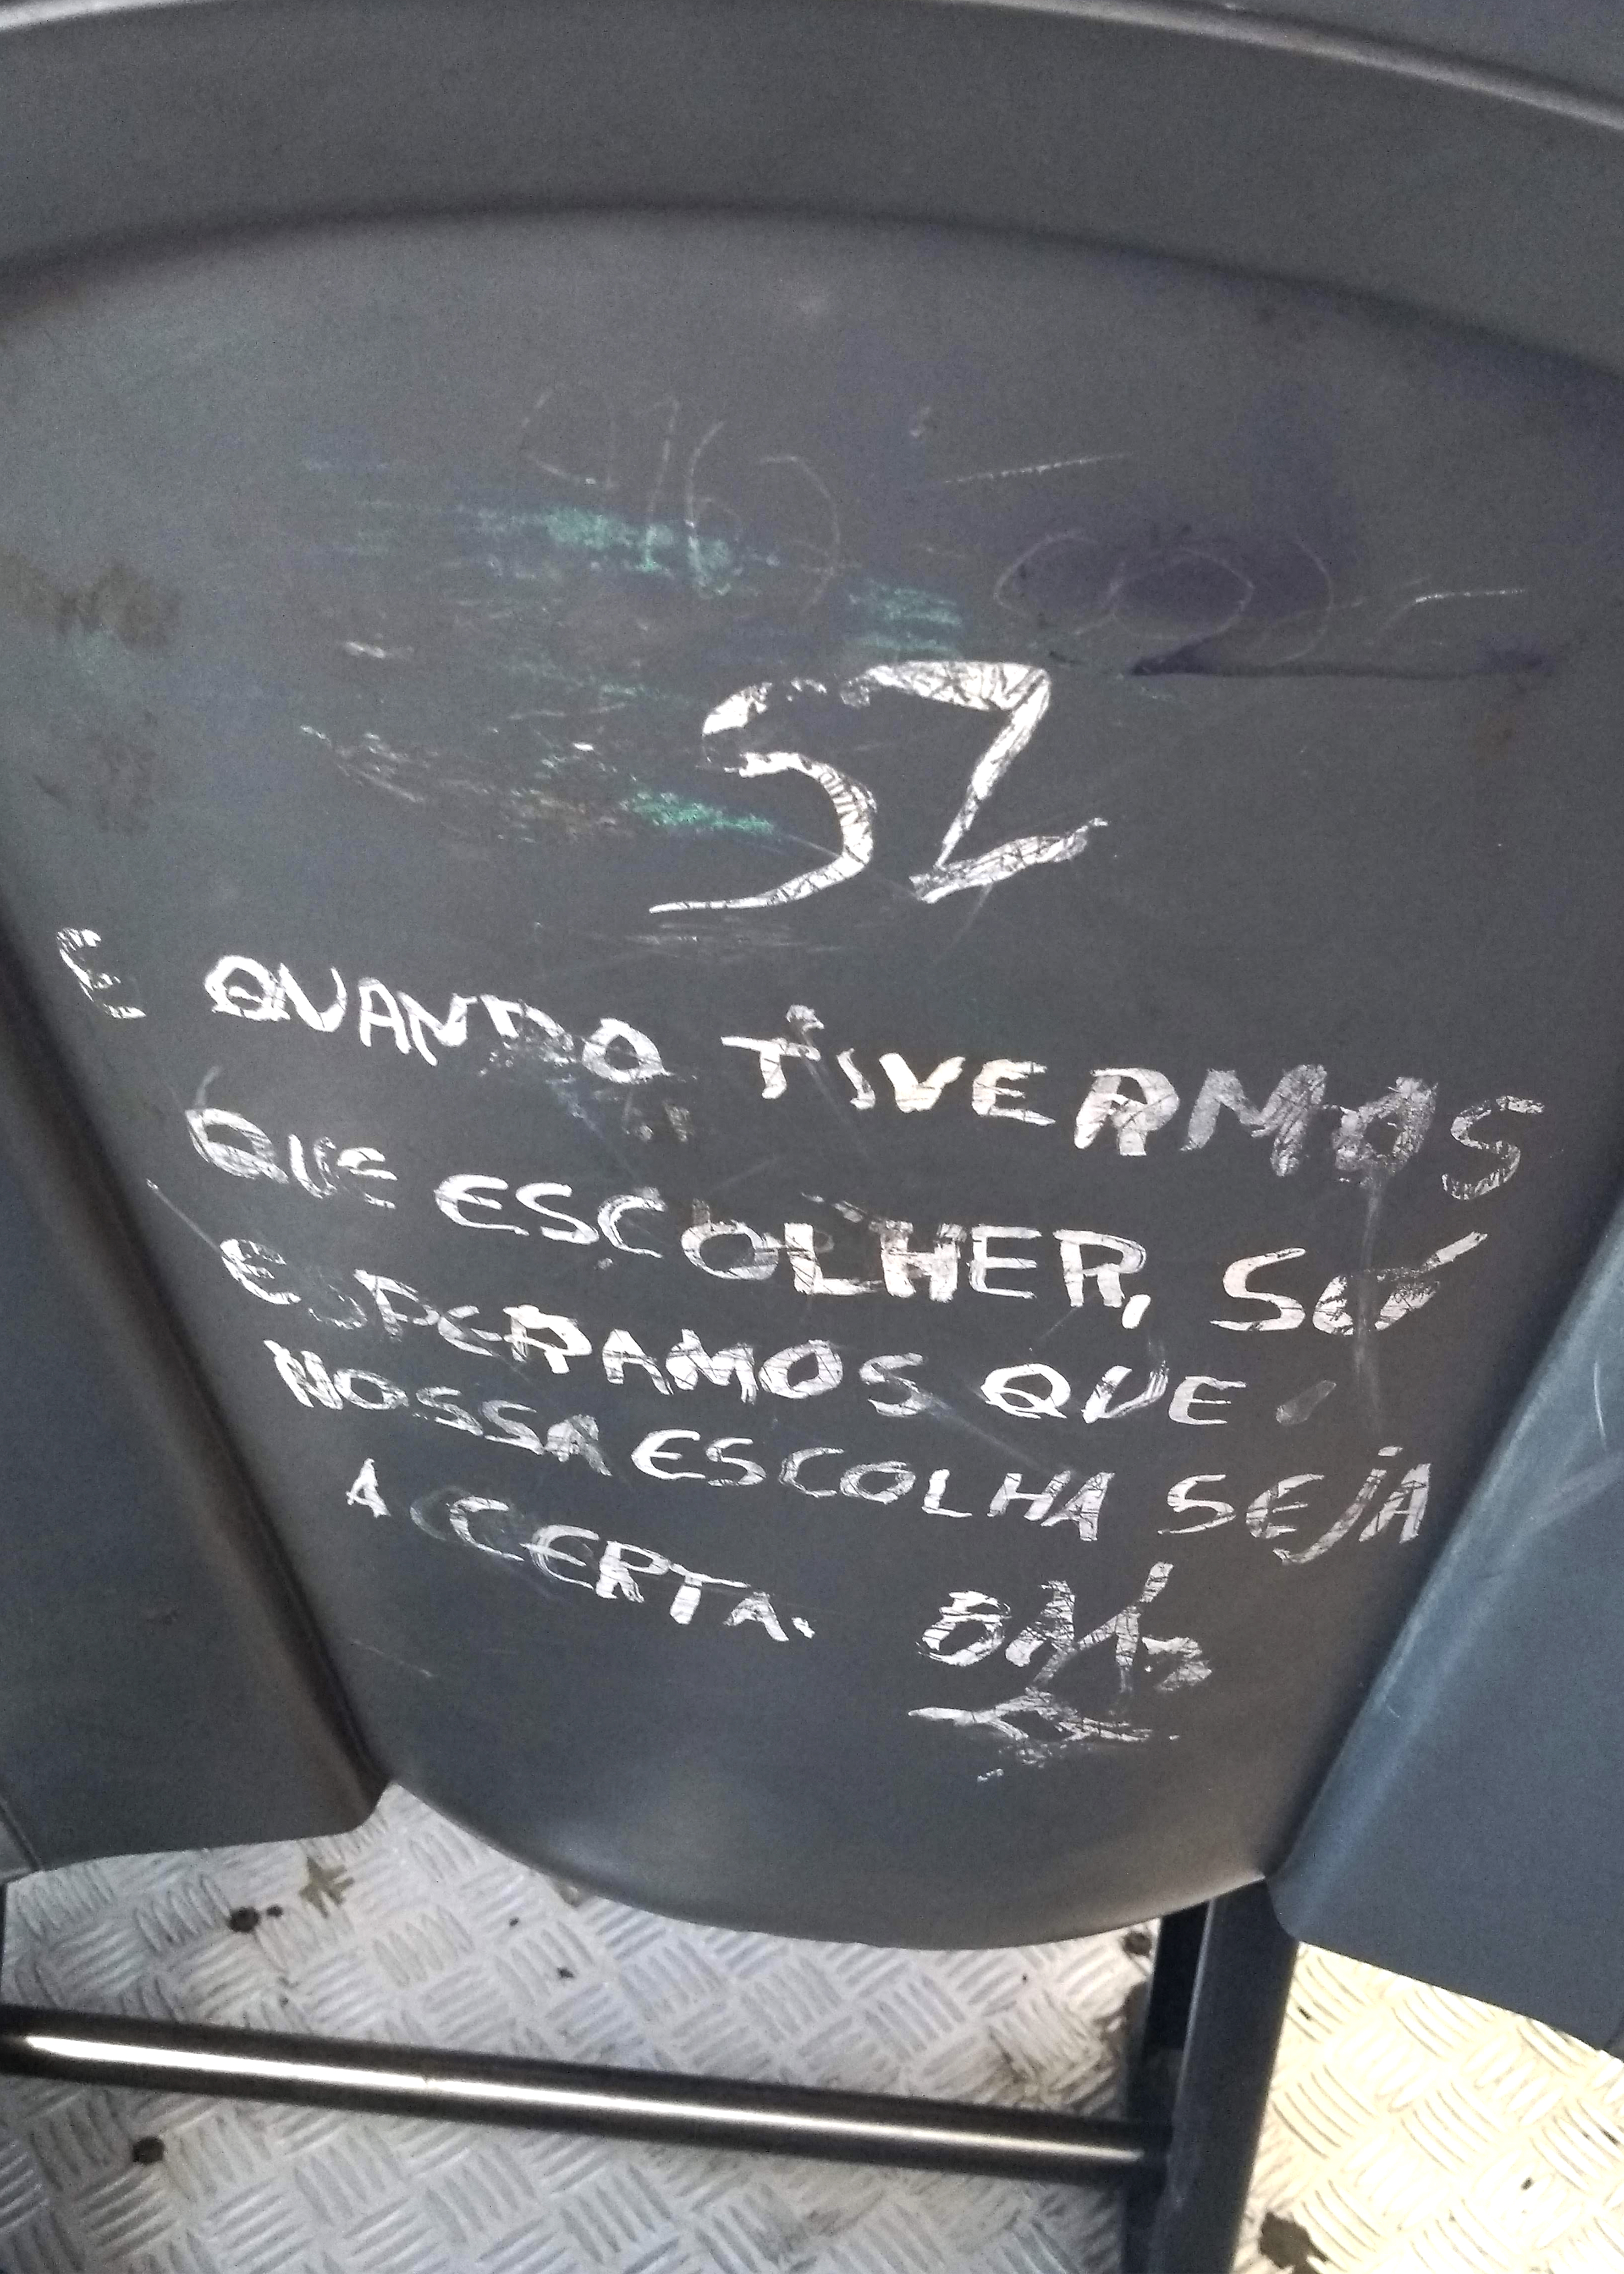 SZ
E QUANDO TIVERMOS
QUE ESCOLHER, SÓ
ESPERAMOS QUE
NOSSA ESCOLHA SEJA
A CERTA.